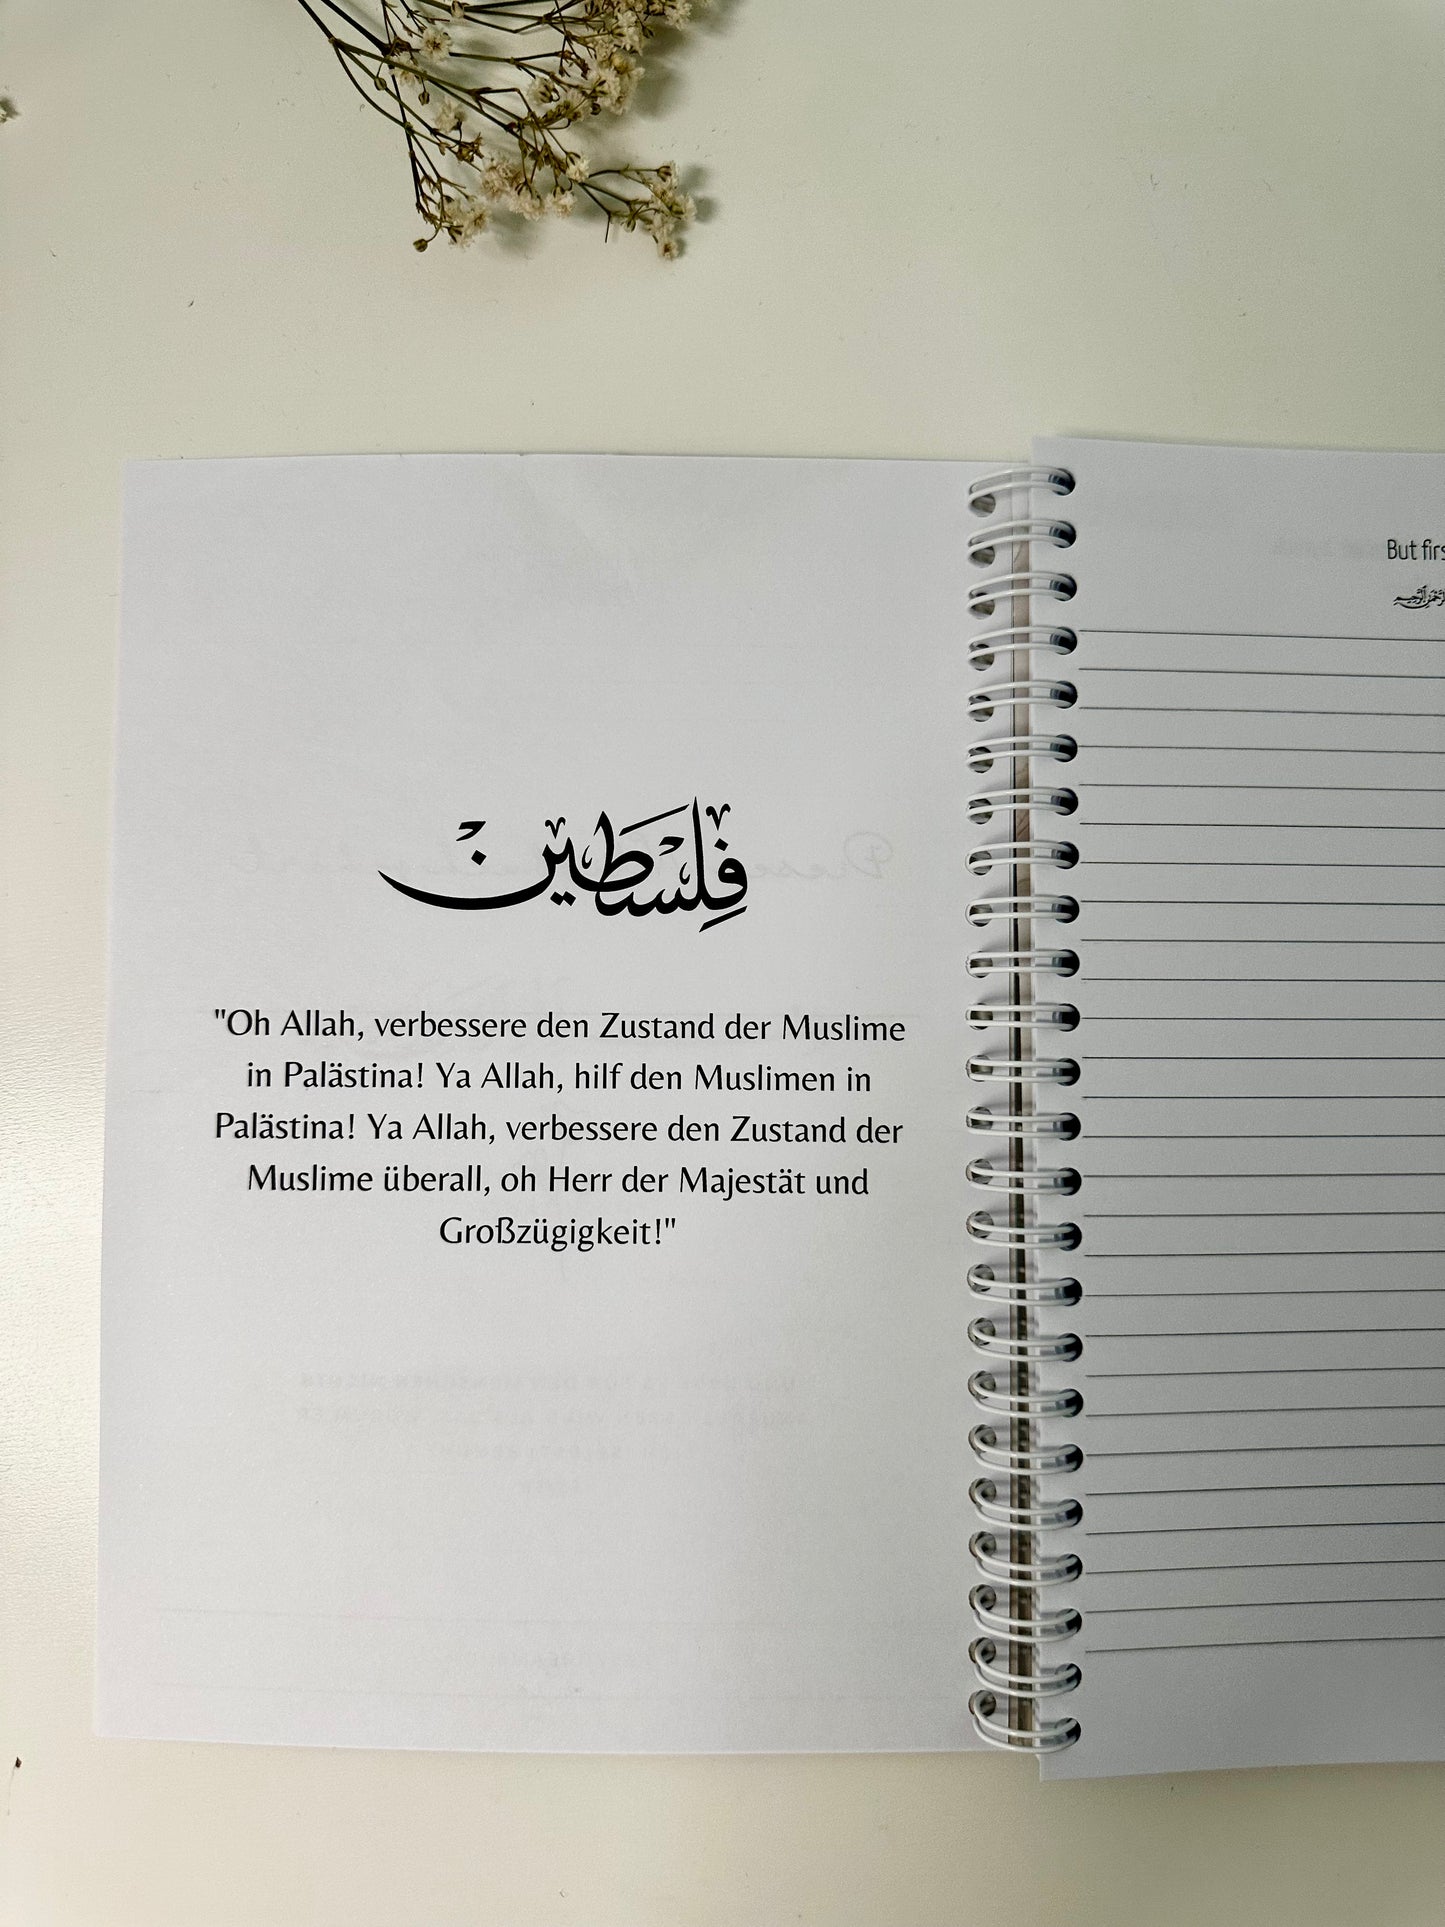 فِلِسْطِين
"Oh Allah, verbessere den Zustand der Muslime
in Palästina! Ya Allah, hilf den Muslimen in
Palästina! Ya Allah, verbessere den Zustand der
Muslime überall, oh Herr der Majestät und
Großzügigkeit!"
But